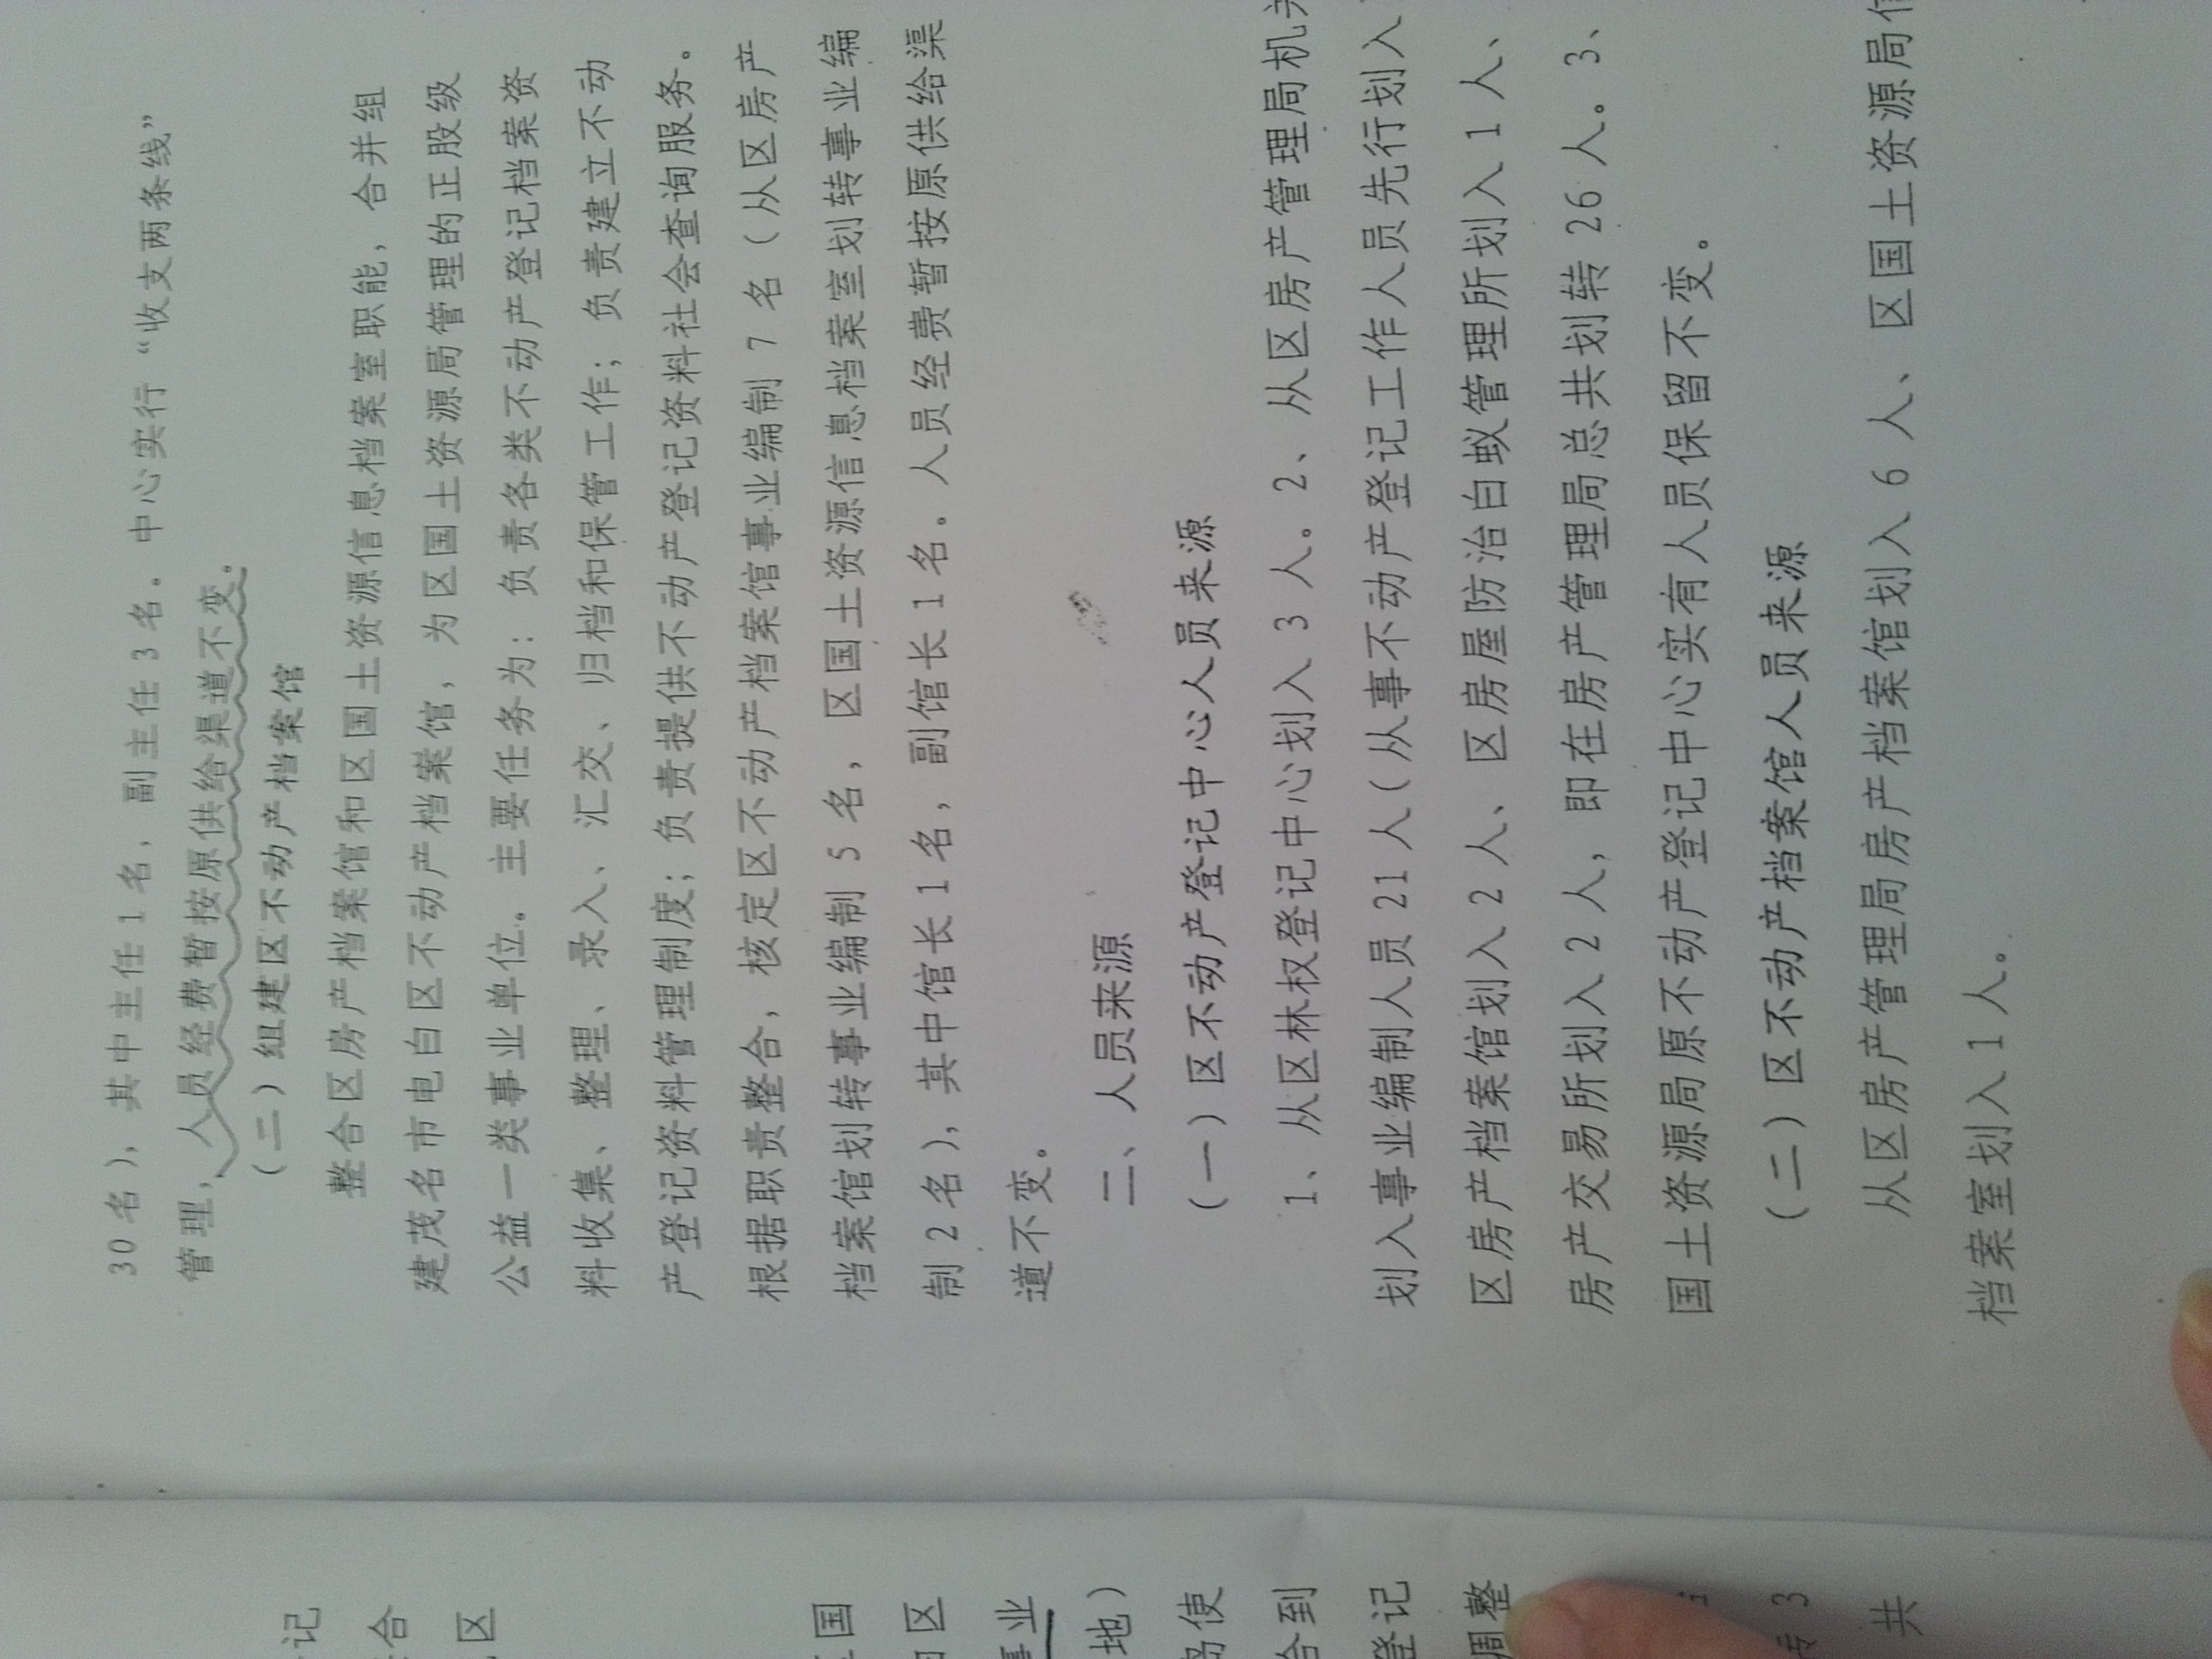 30名），其中主任1名，副主任3名。中心实行“收支两条线”
管理，人员经费暂按原供给渠道不变。
（二）组建区不动产档案馆
整合区房产档案馆和区国土资源信息档案室职能，合并组
建茂名市电白区不动产档案馆，为区国土资源局管理的正股级
公益一类事业单位。主要任务为：负责各类不动产登记档案资
料收集、整理、录入、汇交、归档和保管工作；负责建立不动
产登记资料管理制度；负责提供不动产登记资料社会查询服务。
根据职责整合，核定区不动产档案馆事业编制7名（从区房产
档案馆划转事业编制5名，区国土资源信息档案室划转事业编
制2名），其中馆长1名，副馆长1名。人员经费暂按原供给渠
道不变。
二、人员来源
（一）区不动产登记中心人员来源
1、从区林权登记中心划入3人。2、从区房产管理局机关
划入事业编制人员21人（从事不动产登记工作人员先行划入
区房产档案馆划入2人、区房屋防治白蚁管理所划入1人、
房产交易所划入2人，即在房产管理局总共划转26人。3、
国土资源局原不动产登记中心实有人员保留不变。
（二）区不动产档案馆人员来源
从区房产管理局房产档案馆划入6人、区国土资源局信
档案室划入1人。
记
合
区
国
区
事业
地）
使
合到
登记
调整
3
共